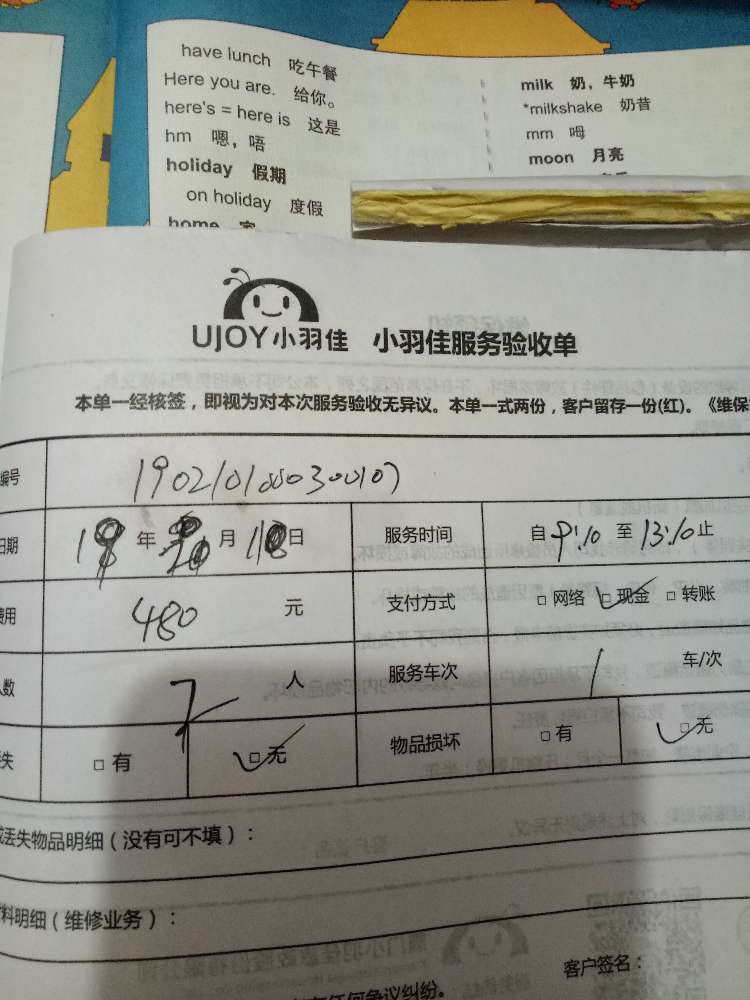 have lunch 吃午餐
Here you are. 给你。
here's = here is 这是
hm 嗯，唔
holiday 假期
on holiday 度假
home
milk 奶，牛奶
*milkshake 奶昔
mm 呣
moon 月亮
UJOY小羽佳 小羽佳服务验收单
本单一经核签，即视为对本次服务验收无异议。本单一式两份，客户留存一份(红)。《维保
编号
日期 年 月 日 服务时间 自 9:10 至 13:10 止
费用 480 元 支付方式 □ 网络 □ 现金 □ 转账
人数 人 服务车次 1 车/次
失 □ 有 □ 无 物品损坏 □ 有 □ 无
丢失物品明细（没有可不填）：
料明细（维修业务）：
客户签名：
任何争议纠纷。